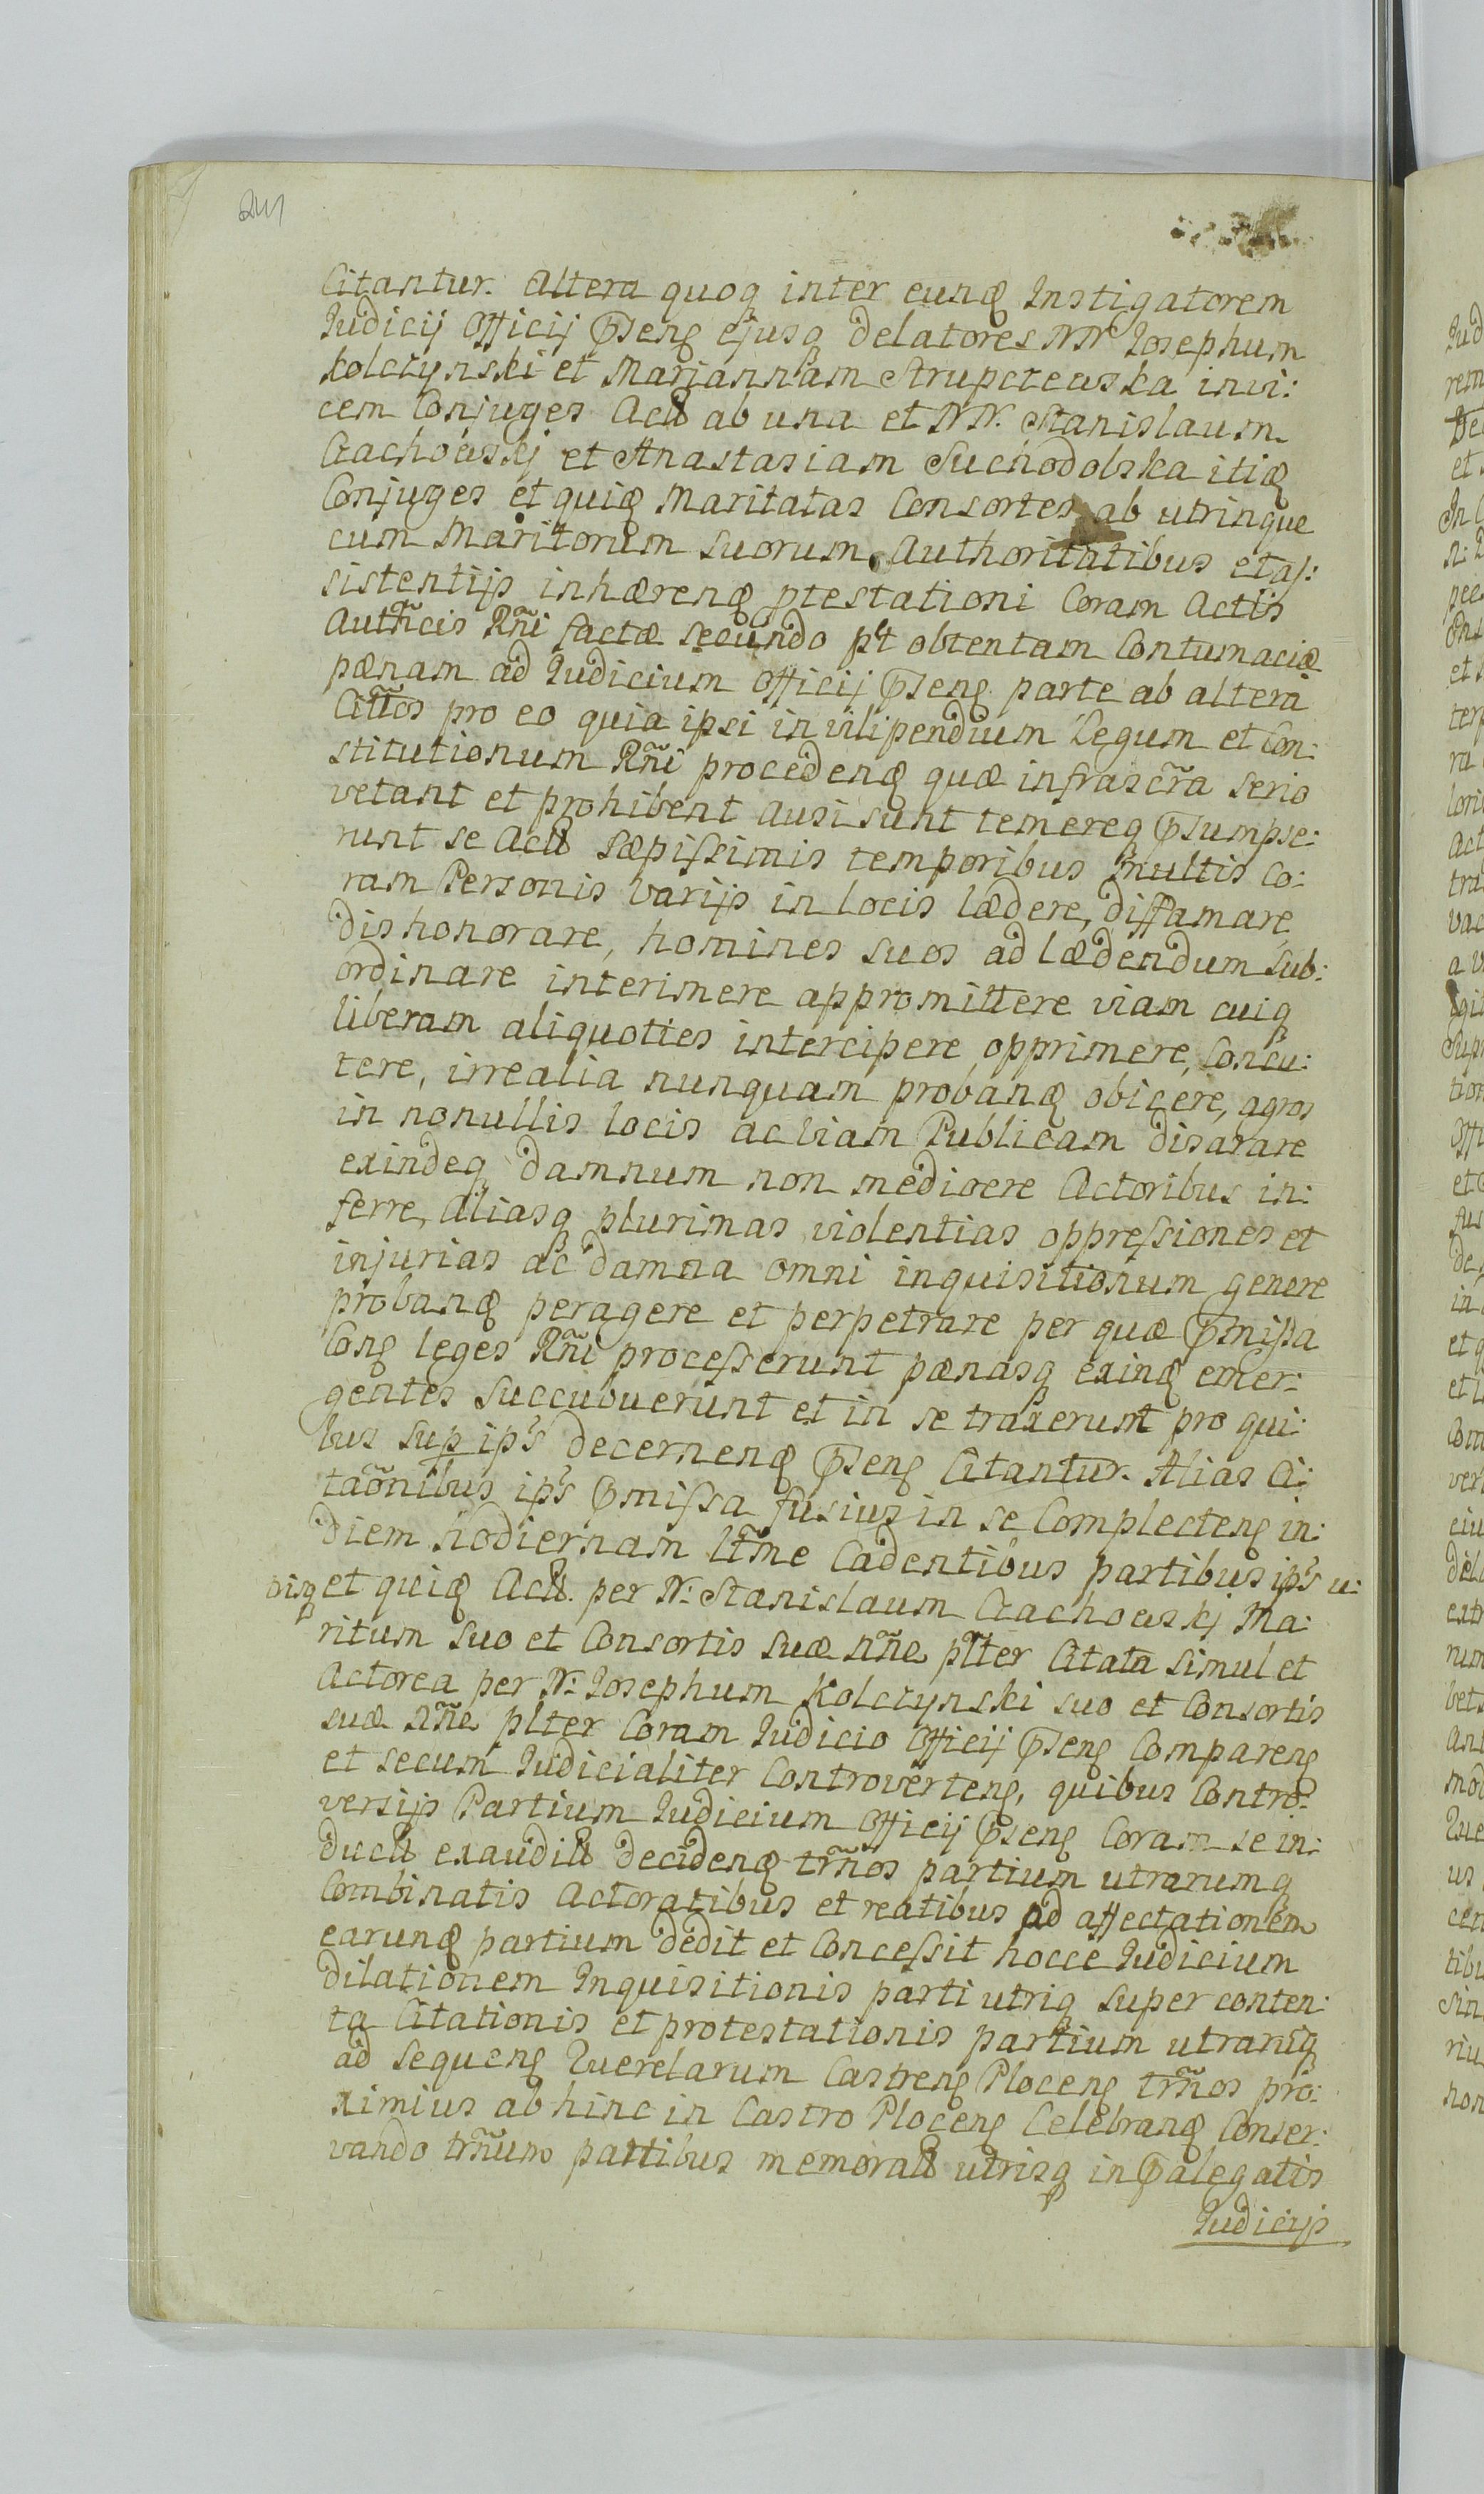 241
Citantur. Altera quoq inter eunđ Instigatorem
Iudicij Officij Pseng ejusq delatores NN Iosephum
Kolczynski et Mariannam Strupczewska invi:
cem Conjuges Actt ab una et NN. Stanislaum
Czachowskj et Anastasiam Suchodolska itiđ
Conjuges et quiđ Maritatas Consortes ab utrinque
cum Maritorum suorum Authoritatibus et as:
sistentijs inhærenđ ptestationi Coram Actis
Authcis Rñi factæ secundo pt obtentam Contumaciæ
pænam ad Iudicium Officij Pseng parte ab altera
Cittos pro eo quia ipsi in vilipendium Legum et Con:
stitutionum Rñi procedenđ quæ infrascr̃a serio
vetant et prohibent ausi sunt temereq Psumpse:
runt se Actt sæpissimis temporibus multis Co:
ram Personis varijs in locis lædere, diffamare
dishonorare, homines suos ad lædendum sub:
ordinare interimere appromittere viam cuiq
liberam aliquoties intercipere opprimere, Concu:
tere, irrealia nunquam probanđ obicere, agros
in nonullis locis ac viam Publicam disarare
exindeq damnum non mediocre Actoribus in:
ferre, aliasq plurimas violentias oppressiones et
injurias ac damna omni inquisitionum genere
probanđ peragere et perpetrare per quæ Pmissa
Cong leges Rñi processerunt pænasq exinđ emer:
gentes succubuerunt et in se traxerunt pro qui:
bus sup ip's decernenđ Pseng Citantur. Alias Ci:
taõnibus ip's Pmissa fusius in se Complecteng in:
diem hodiernam lt̃me Cadentibus partibus ip's u:
trisq et quiđ Actt. per N: Stanislaum Czachowskj Ma:
ritum suo et Consortis suæ nñe plter Citata simul et
Actorea per N: Iosephum Kolczynski suo et Consortis
suæ nñe plter Coram Iudicio Officij Pseng Compareng
et secum Iudicialiter Controverteng, quibus Contro:
versijs Partium Iudicium Officij Pseng Coram se in:
ductt exauditt decidenđ trños partium utrarumq
Combinatis Actoratibus et reatibus ad affectationem
earunđ partium dedit et Concessit hocce Iudicium
dilationem Inquisitionis parti utriq super conten:
ta Citationis et protestationis partium utrarũq
ad sequeng Querelarum Castreng Ploceng trños pro:
ximius abhinc in Castro Ploceng Celebranđ Conser:
vando trñum partibus memoratt utrisq in Palegatis
Iudicijs